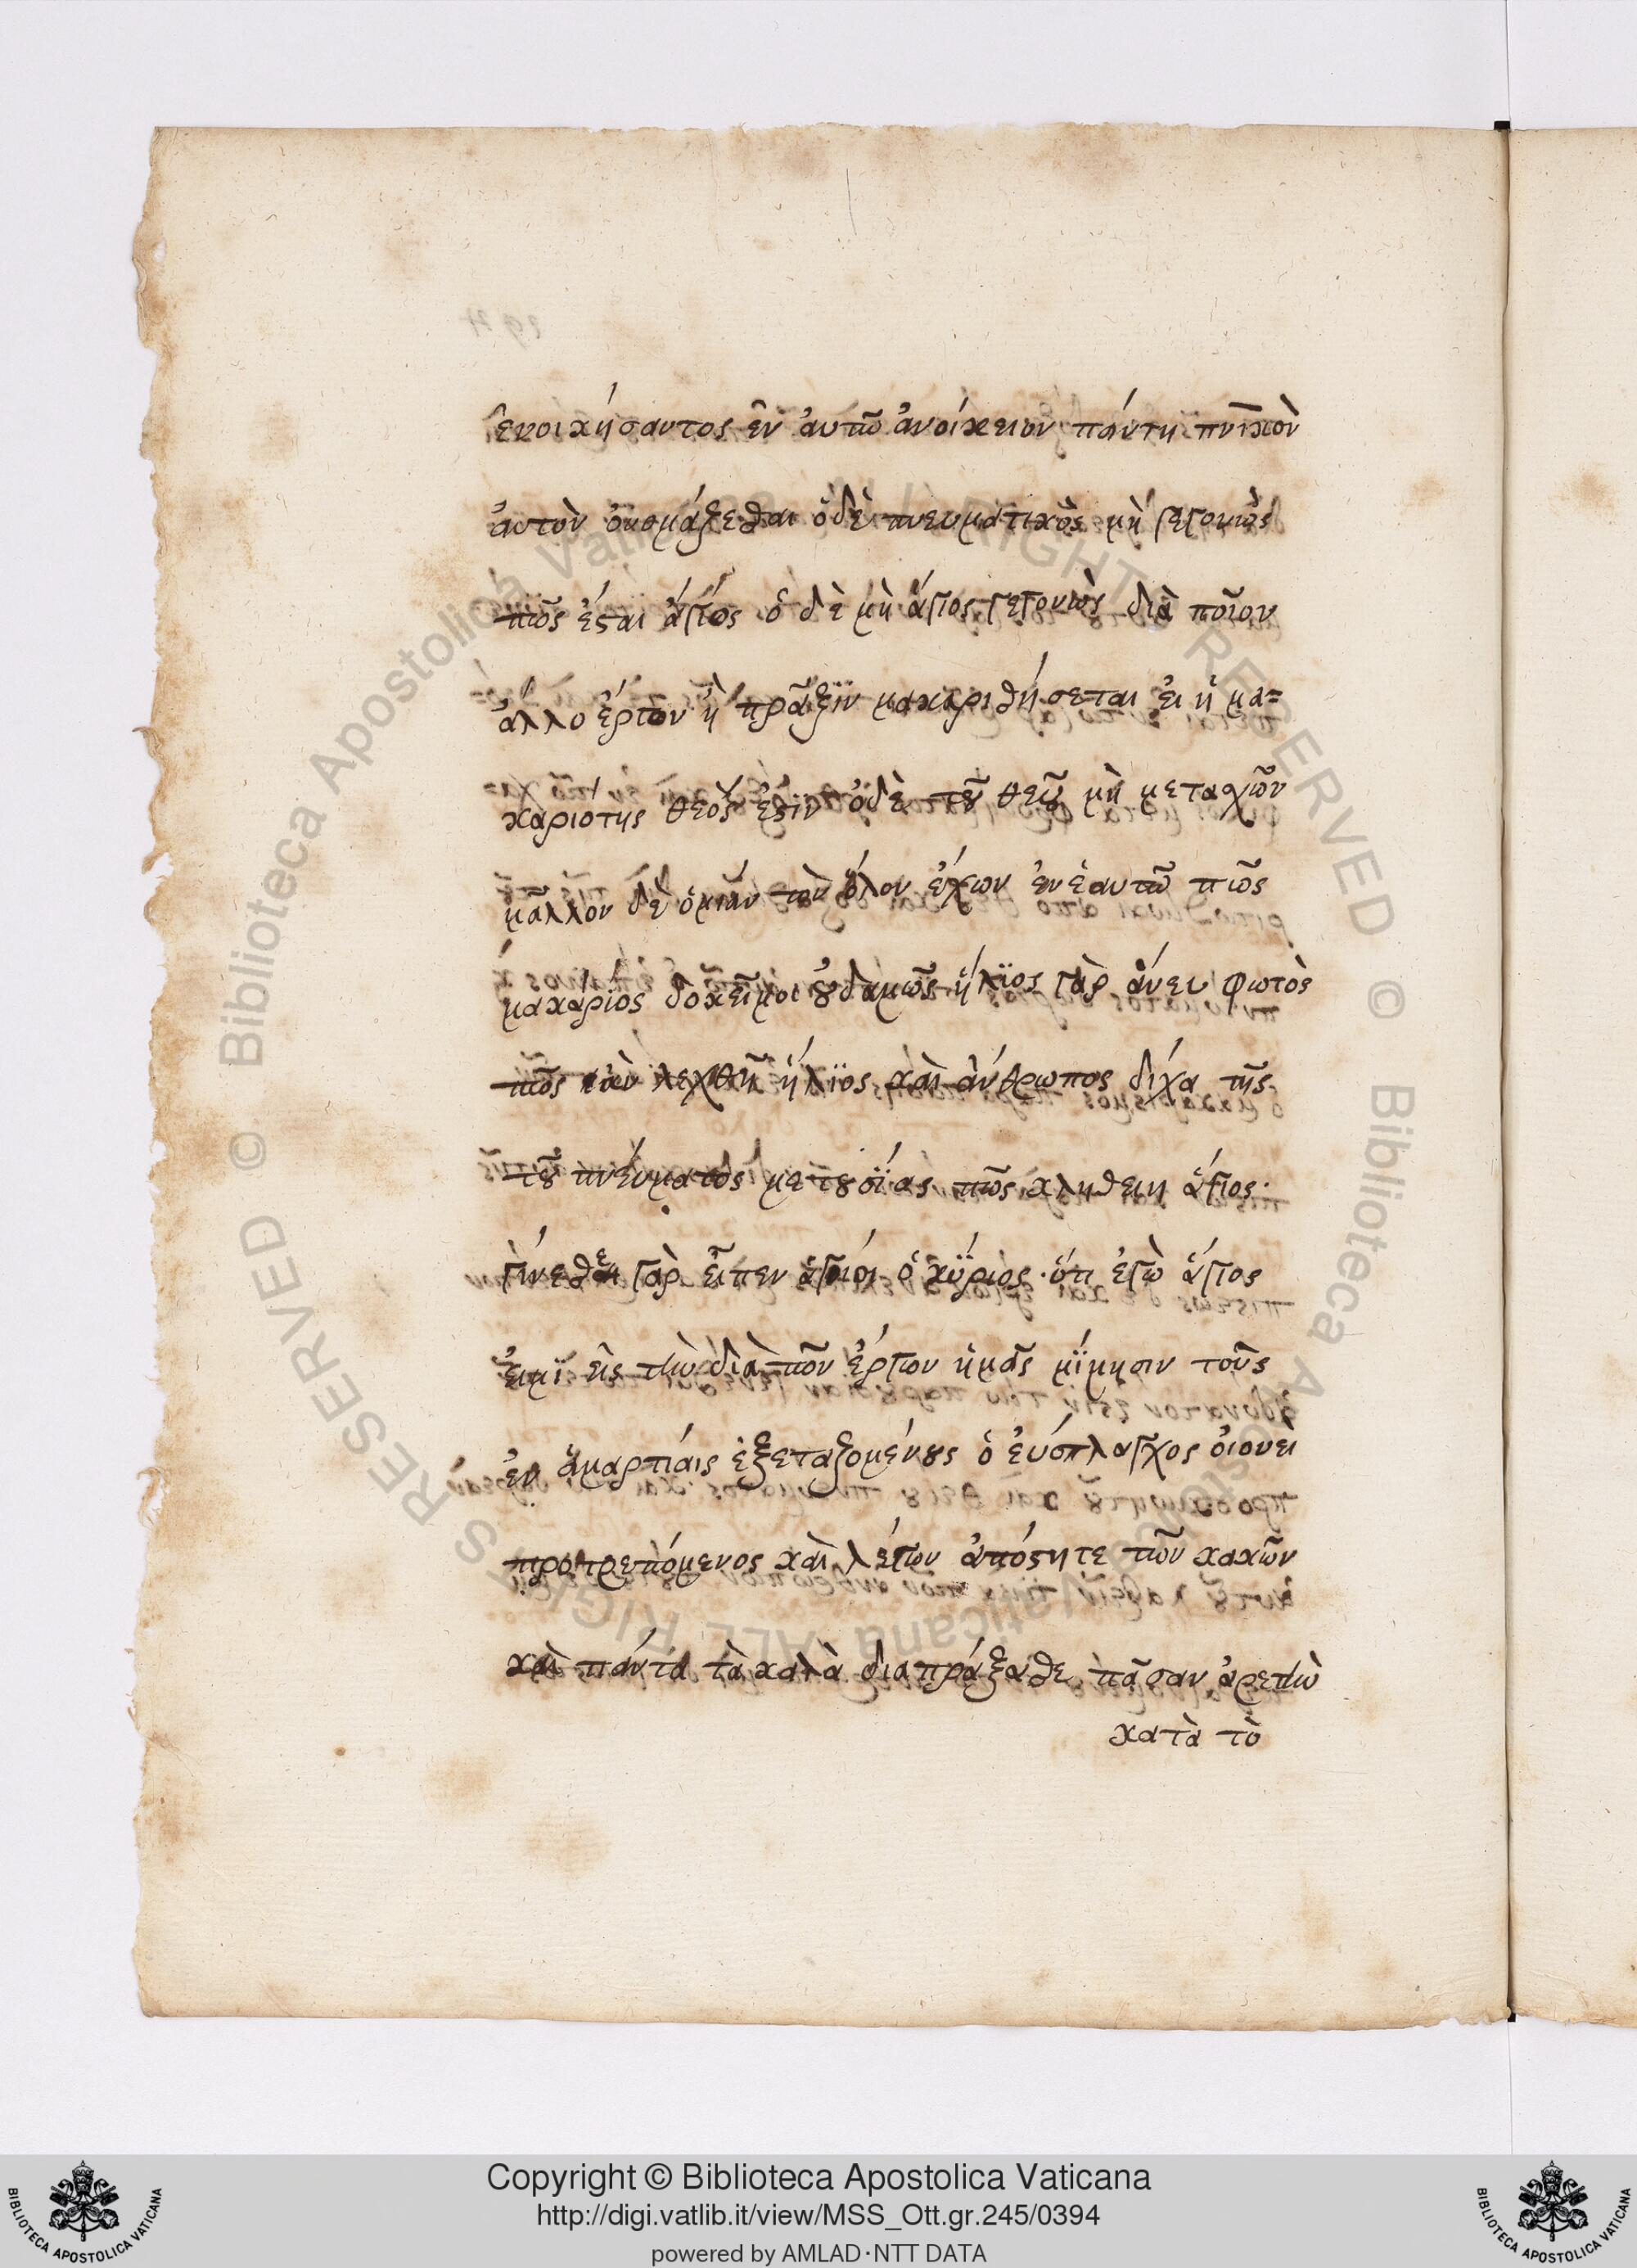 ἐνοικήσαντος ἐν ἀυτῶ ἀνοίκειον πάντη πνικὸν
ἀυτὸν ὀνομάζεσθαι ὁδὲ πνευματικὸς μὴ γεγονὼς
πῶς ἔσται ἅγιος ὁ δὲ μὴ ἅγιος γεγονὼς διὰ ποῖον
ἄλλο ἔργον ἢ πρᾶξϊν μακαριθήσεται ἐι ἡ μα=
καριότης θεὸς ἐστὶν ὁδὲ τοῦ θεοῦ μὴ μετασχὼν
μᾶλλον δὲ τὸν ὅλον ἔχων ἐν ἑαυτῶ πῶς
μακάριος δοκεῖ μοι οὐδαμῶς ἥλϊος γὰρ ἄνευ φωτὸς
πῶς ἐὰν λεχθῆ ἥλϊος καὶ ἄνθρωπος δίχα τῆς
τοῦ πνεύματος μετουσΐας πῶς κληθείη ἅγιος·
γίνεσθε γὰρ εἶπεν ἅγιοι ὁ κύριος· ὅτι ἐγὼ ἅγιος
ἐιμϊ εἰς τὴν διὰ τῶν ἔργων ἡμᾶς μΐμησιν τοῦς
ἐν ἁμαρτίαις ἐξεταζομένους ὁ ἐυσπλαγχος ὁιονεὶ
προτρεπόμενος καὶ λέγων ἀπόστητε τῶν κακῶν
καὶ πάντα τὰ καλὰ διαπράξασθε πᾶσαν ἀρετὴν
κατὰ τὸ
Copyright © Biblioteca Apostolica Vaticana
http://digi.vatlib.it/view/MSS_Ott.gr.245/0394
powered by AMLAD·NTT DATA
BIBLIOTECA APOSTOLICA VATICANA
BIBLIOTECA APOSTOLICA VATICANA